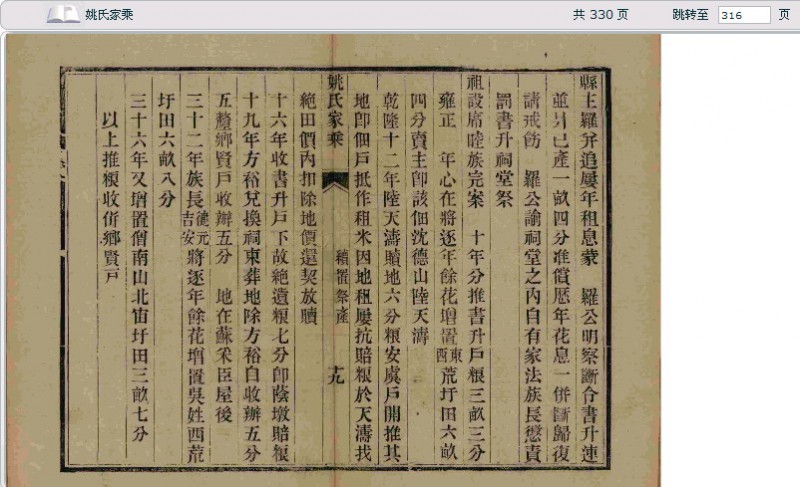 姚氏家乘
共 330 页
跳转至 316 页
縣主羅弁追屢年租息蒙 羅公明察斷令書升連
並弁己產一畝四分准償歷年花息一併斷歸復
請戒飭 羅公諭祠堂之內自有家法族長懲責
罰書升祠堂祭
祖設席睦族完案 十年分推書升戶糧三畝三分
雍正 年心在將逐年餘花增置東西荒圩田六畝
四分賣主卽該佃沈德山陸天濤
乾隆十二年陸天濤贖地六分糧安虞戶開推其
地卽佃戶抵作租米因地租屢抗賠糧於天濤找
姚氏家乘
續置祭產
十九
絕田價內扣除地價還契放贖
十六年收書升戶下故絕遺糧七分卽蔭墩賠糧
十九年方裕兌換祠東葬地除方裕白收辦五分
五釐鄉賢戶收辦五分 地在蘇釆臣屋後
三十二年族長德元吉安將逐年餘花增置吳姓西荒
圩田六畝八分
三十六年又增置僧南山北宙圩田三畝七分
以上推糧收併鄉賢戶